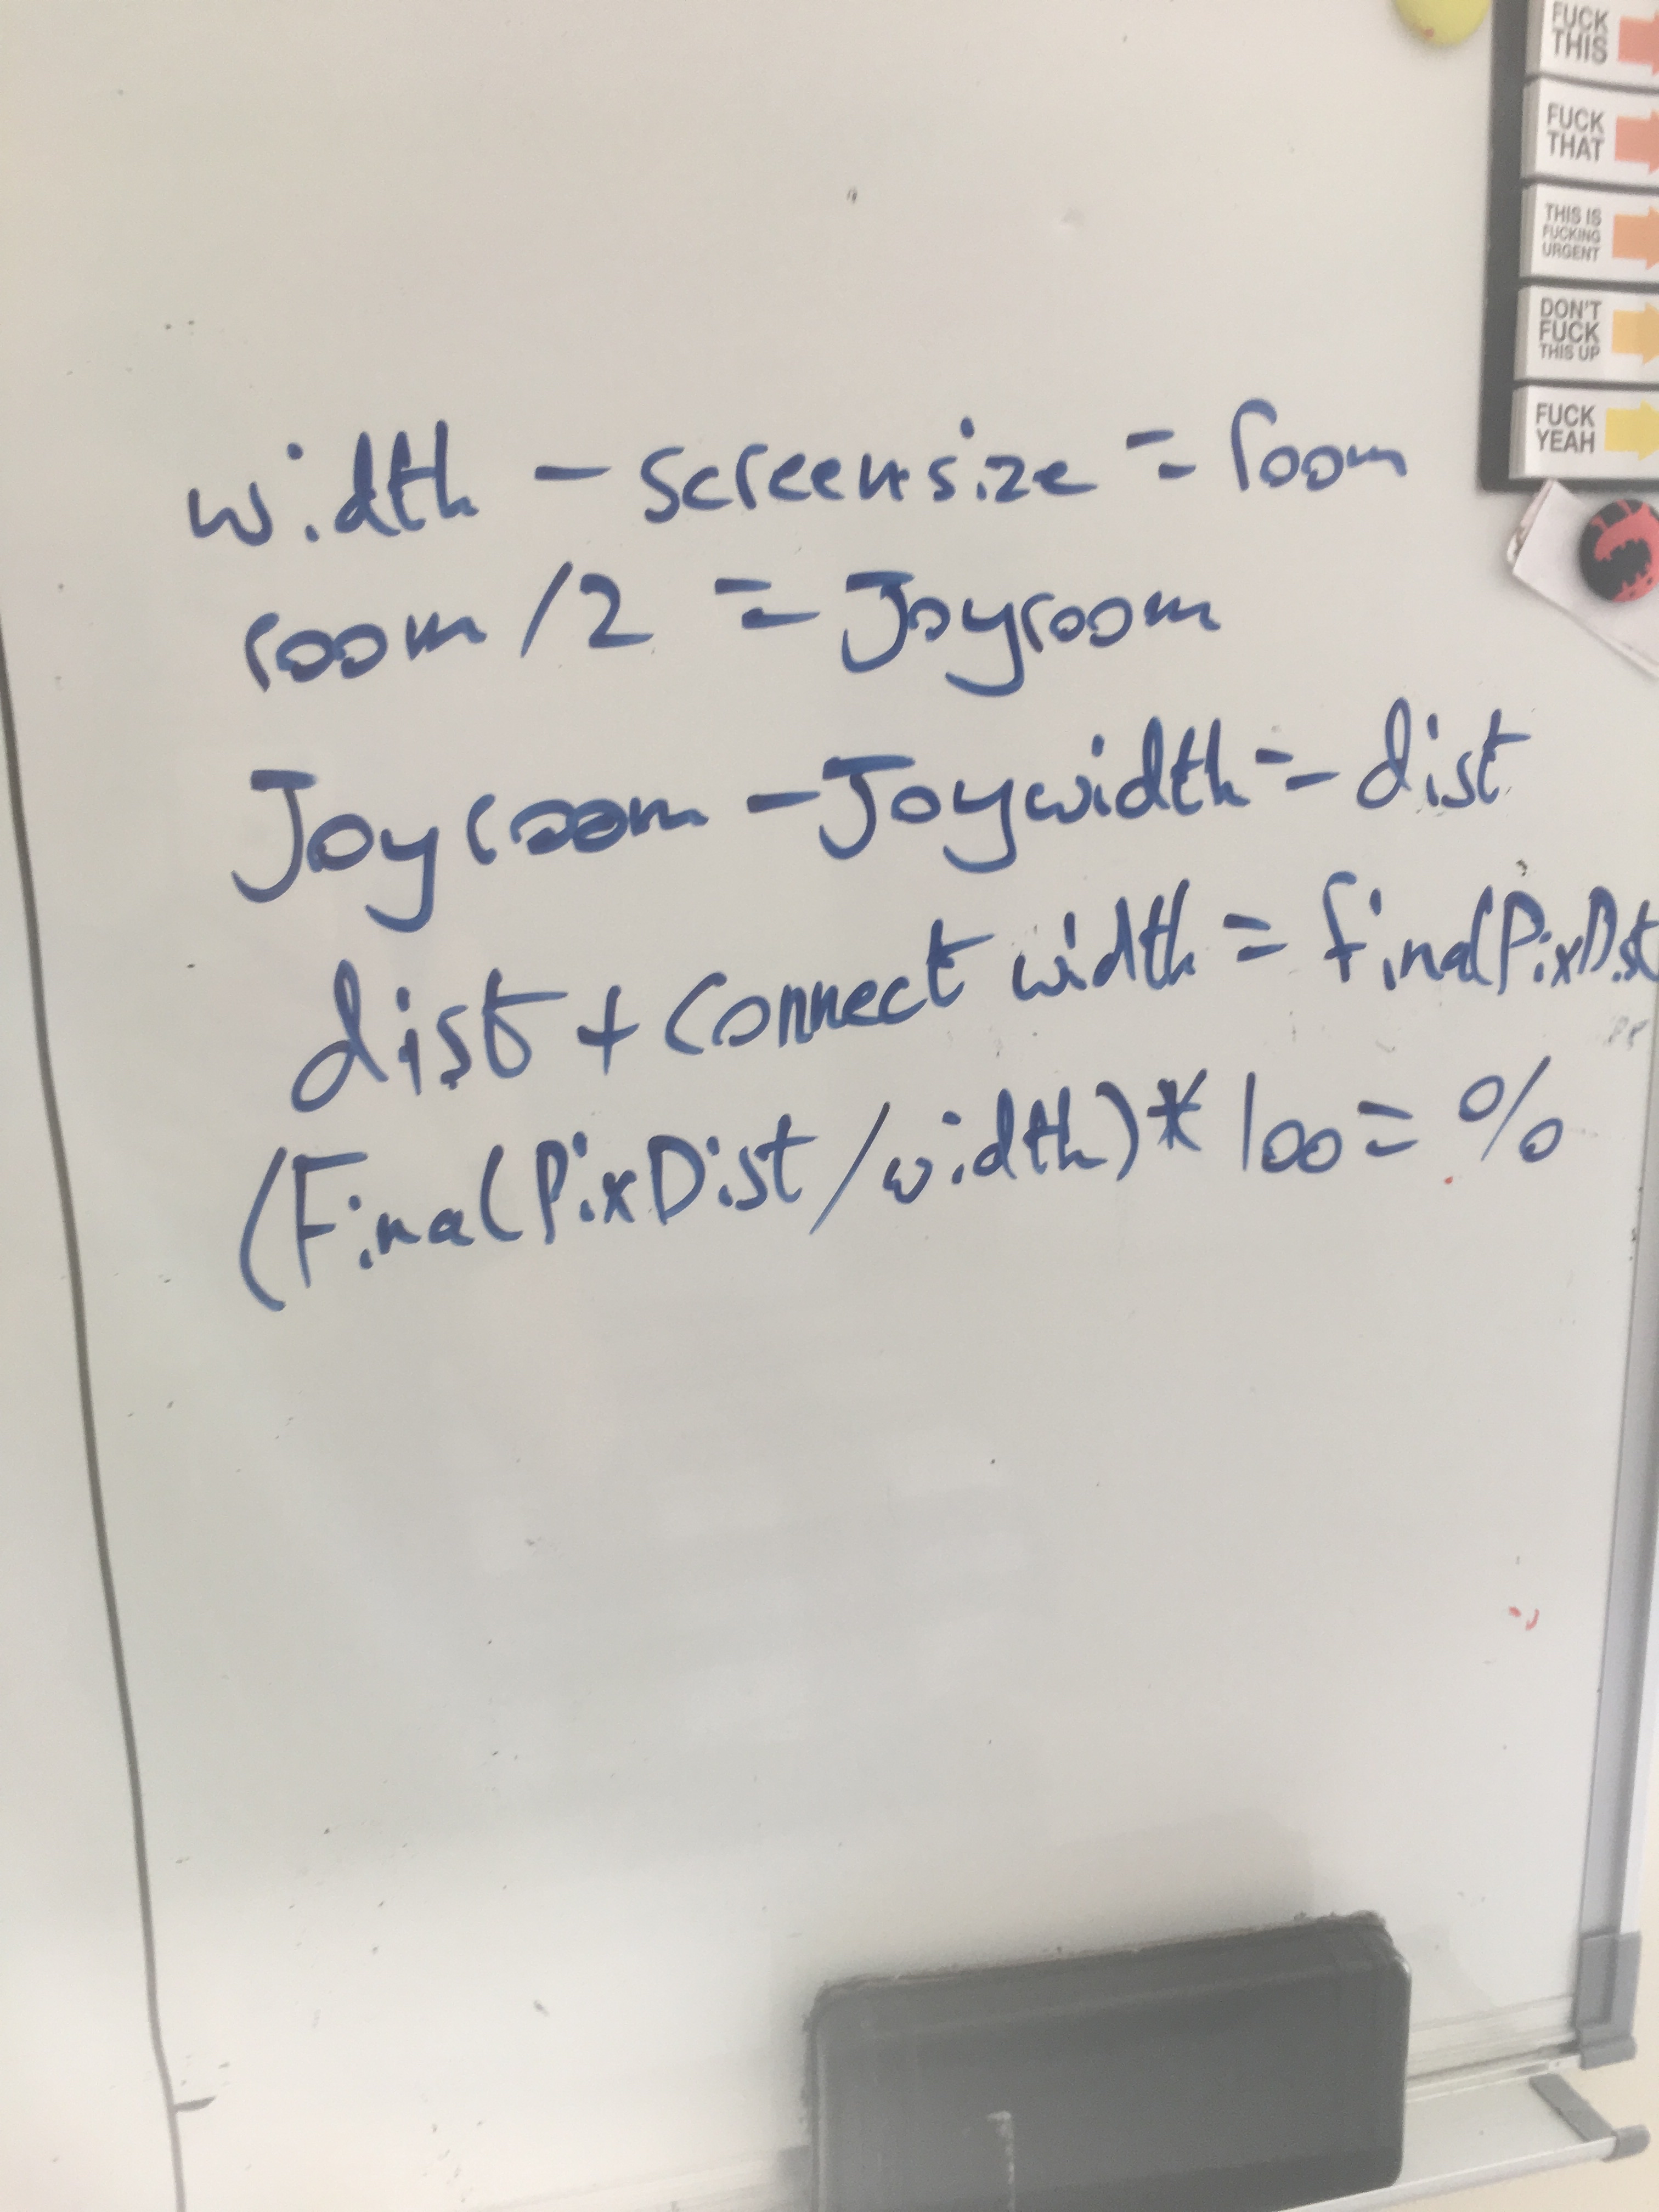 FUCK
THIS
FUCK
THAT
THIS IS
FUCKING
URGENT
DON'T
FUCK
THIS UP
FUCK
YEAH
width - screensize = room
room /2 = Joyroom
Joyroom - Joywidth = dist
dist + connect width = finalPixDist
(FinalPixDist/width)* 100 = %